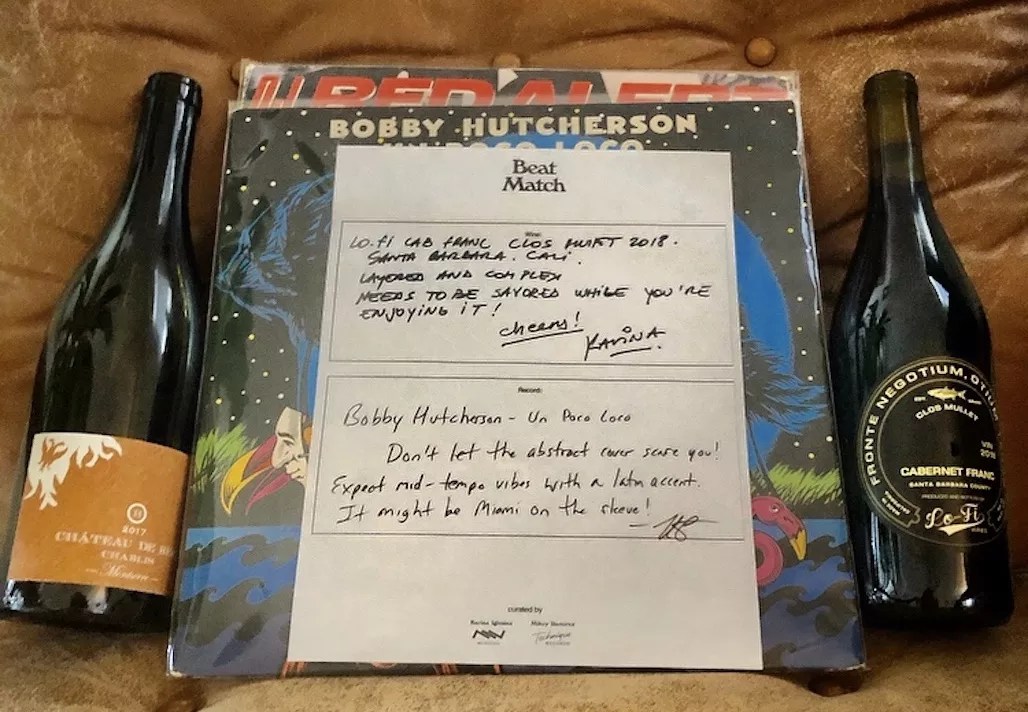 RED ALERT
BOBBY HUTCHERSON
UN POCO LOCO
Beat
Match
Wine:
LO-FI CAB FRANC CLOS MULLET 2018.
SANTA BARBARA. CALI.
LAYERED AND COMPLEX
NEEDS TO BE SAVORED WHILE YOU'RE
ENJOYING IT!
cheers!
KARINA.
Record:
Bobby Hutcherson - Un Poco Loco
Don't let the abstract cover scare you!
Expect mid-tempo vibes with a latin accent.
It might be Miami on the sleeve!
curated by
Karina Iglesias
Technique
RECORDS
2017
CHÂTEAU DE
CHABLIS
FRONTE NEGOTIUM. OTIUM
CLOS MULLET
VIN
2018
CABERNET FRANC
SANTA BARBARA COUNTY
PRODUCED AND BOTTLED
Lo-Fi
WINES